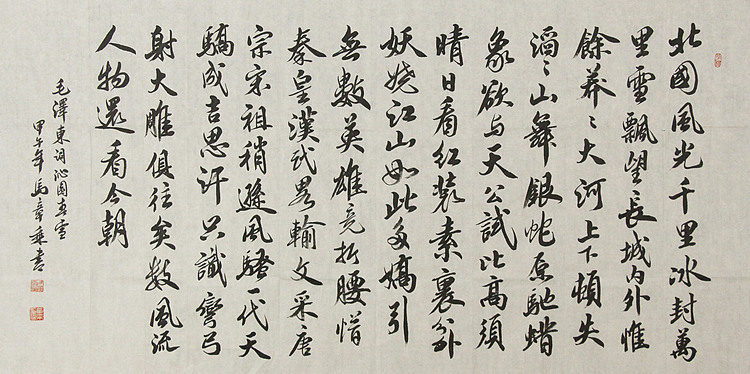 北國風光千里冰封萬
里雪飄望長城內外惟
餘莽〻大河上下頓失
滔〻山舞銀蛇原馳蜡
象欲与天公試比高須
晴日看紅裝素裹分外
妖嬈江山如此多嬌引
無數英雄竞折腰惜
秦皇漢武畧輸文采唐
宗宋祖稍遜風騷一代天
驕成吉思汗只識彎弓
射大雕俱往矣數風流
人物還看今朝
毛澤東詞沁園春雪
甲午年馬章乘書